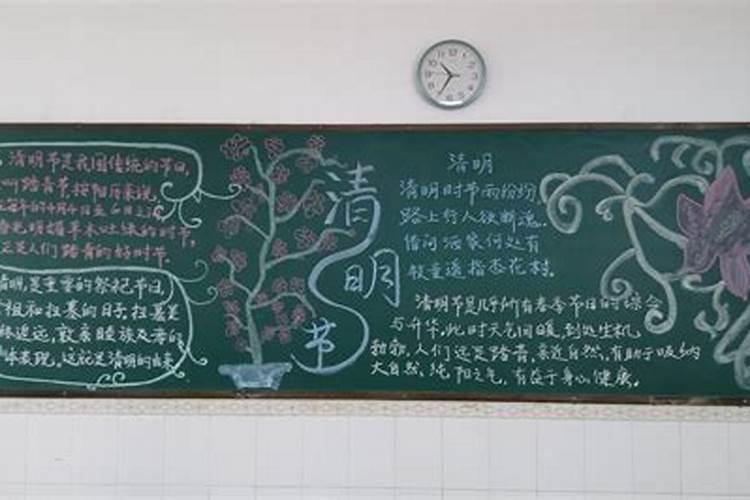 清明节是我国传统的节日,
叫踏青节按阳历来说,
春光明媚草木吐绿的时节,
正是人们踏青的好时节.
清明,是重要的祭祀节日,
祖和扫墓的日子.扫墓是
追远,敦亲睦族及
体表现.这就是清明的由来
清
明
节
清明
清明时节雨纷纷,
路上行人欲断魂.
借问酒家何处有
牧童遥指杏花村.
清明节是几乎所有春季节日的综合
与升华.此时天气回暖,到处生机
勃勃,人们远足踏青,亲近自然,有助于吸纳
大自然,纯阳之气,有益于身心健康.